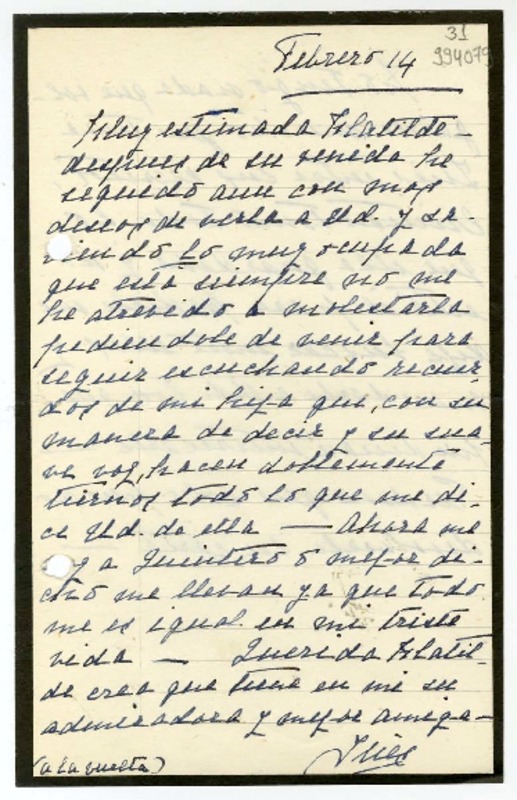 31
994079
Febrero 14
Muy estimada Matilde
despues de su venida he
seguido aun con mas
deseos de verla a Ud. y sa-
viendo lo muy ocupada
que está siempre no me
he atrevido a molestarla
pediendole de venir para
seguir escuchando recuer-
dos de mi hija que, con su
manera de decir y su sua-
ve voz, hacen doblemente
tiernos todo lo que me di-
ce Ud. de ella — Ahora me
y a Quintero o mejor di-
cho me llevan ya que todo
me es igual en mi triste
vida — Querida Matil-
de crea que tiene en mi su
admiradora y mejor amiga—
Inés
(a la vuelta)